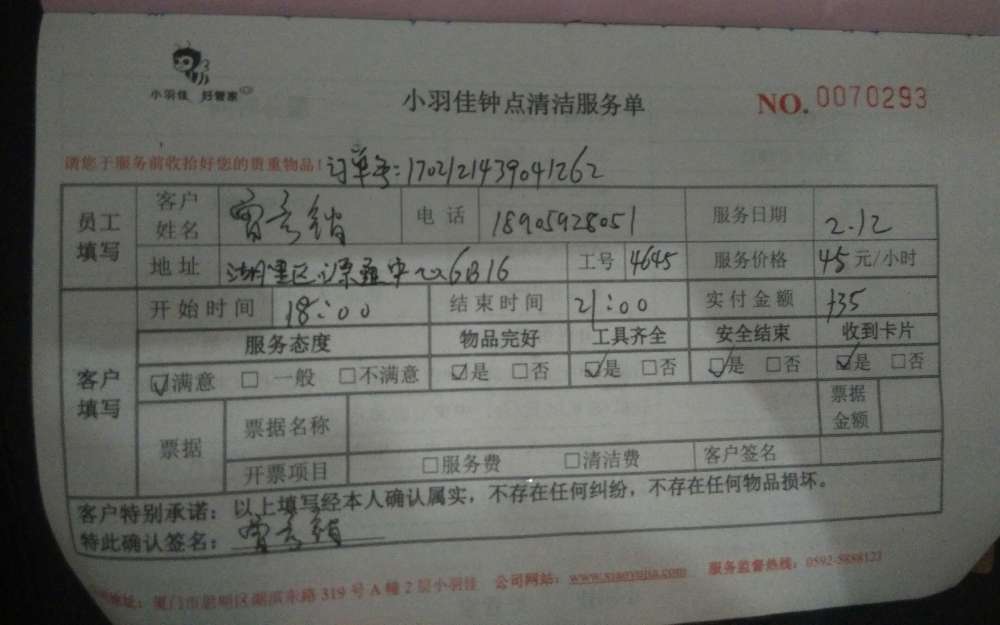 小羽佳 好管家
小羽佳钟点清洁服务单
NO. 0070293
请您于服务前收拾好您的贵重物品! 订单号:170212143904126 2
员工填写 客户姓名 电话 18905928051 服务日期 2.12
地址 湖里区 中心6B16 工号 4645 服务价格 45 元/小时
客户填写 开始时间 18:00 结束时间 21:00 实付金额 135
服务态度 物品完好 工具齐全 安全结束 收到卡片
☑满意 □一般 □不满意 ☑是 □否 ☑是 □否 ☑是 □否 ☑是 □否
票据 票据名称 票据金额
开票项目 □服务费 □清洁费 客户签名
客户特别承诺:以上填写经本人确认属实,不存在任何纠纷,不存在任何物品损坏。
特此确认签名:
地址:厦门市思明区湖滨东路319号A幢2层小羽佳 公司网站:www.xiaoyujia.com 服务监督热线:0592-5888123